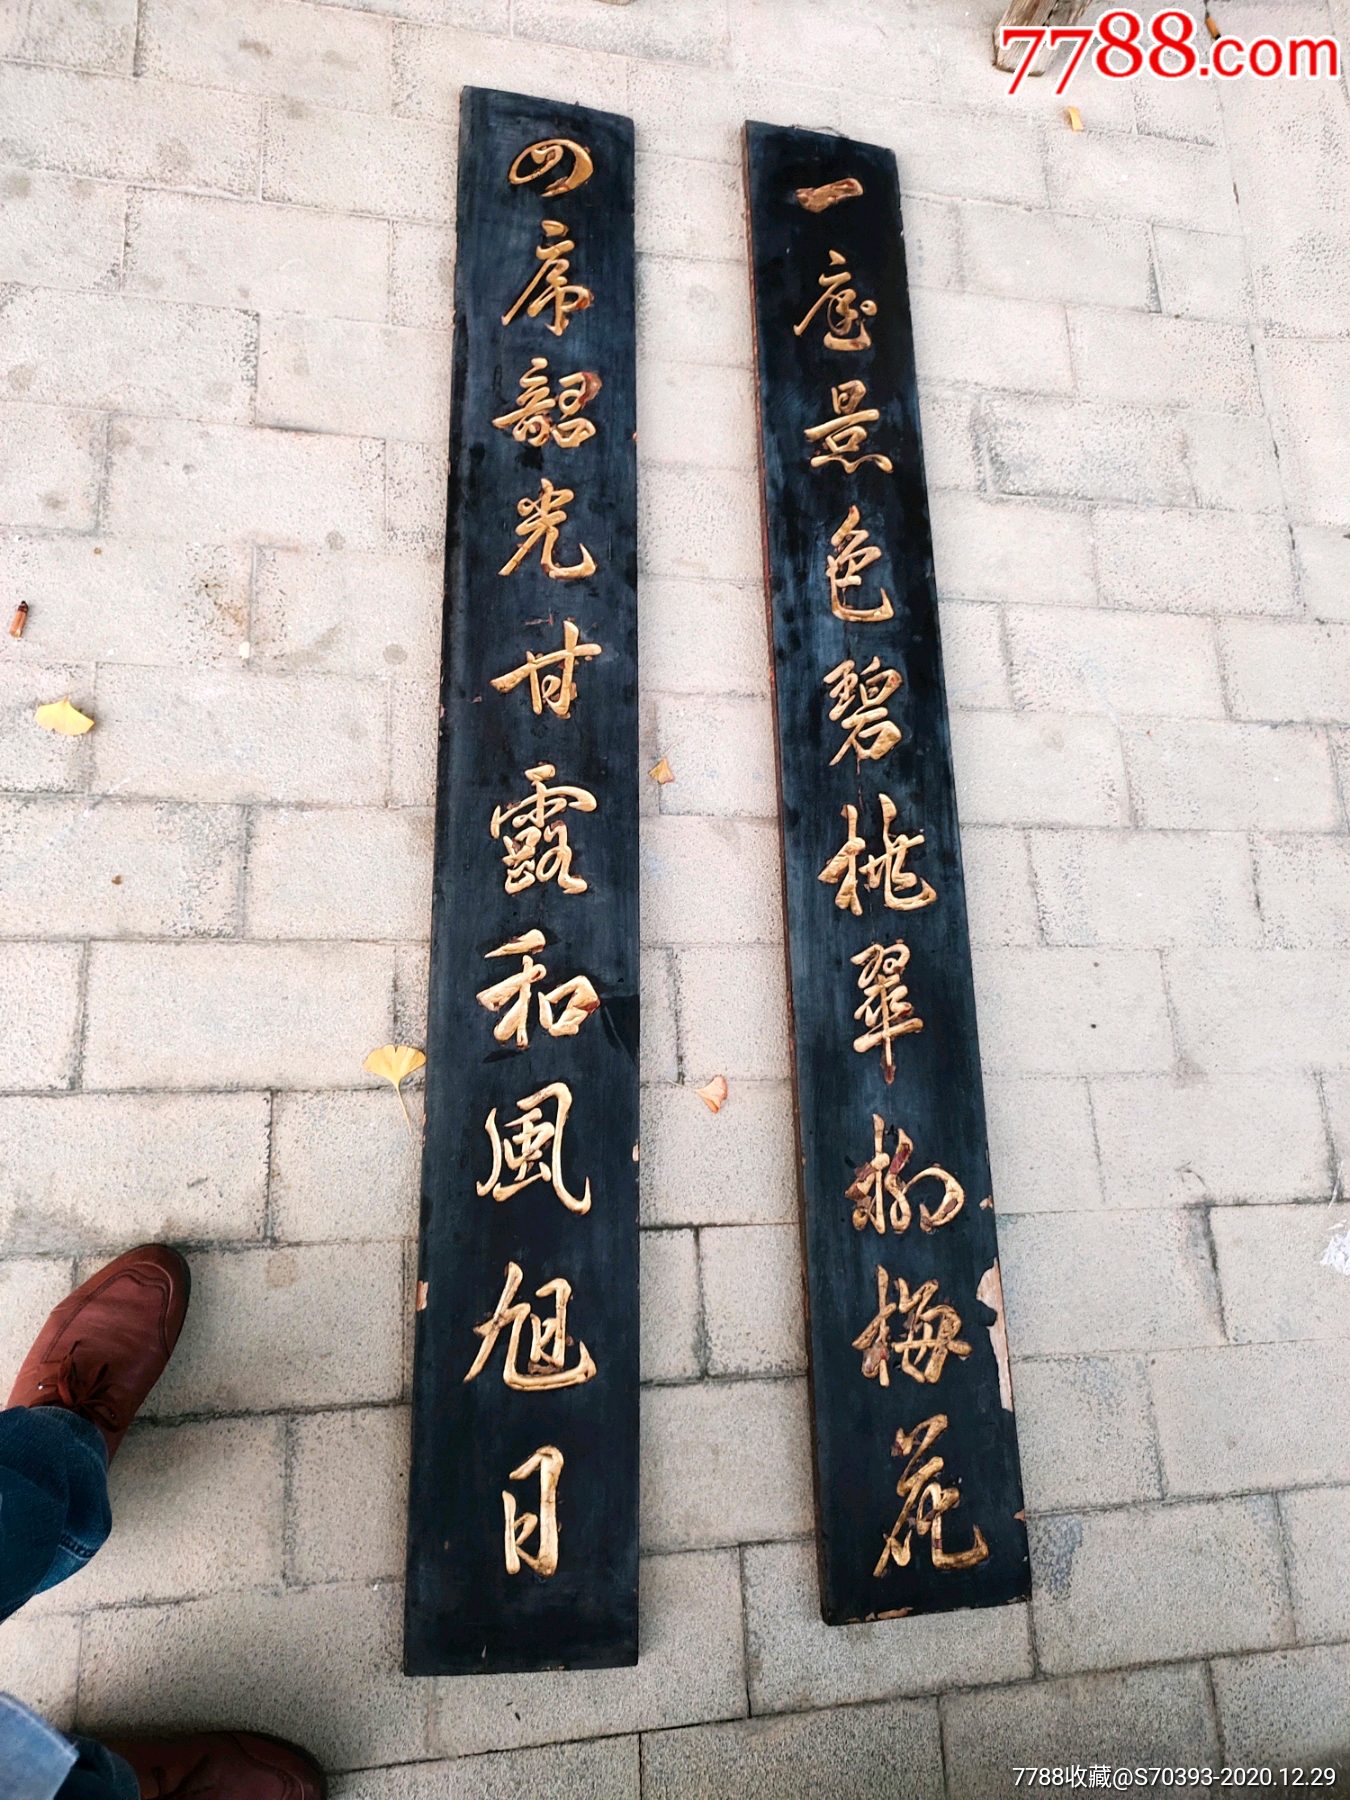 一庭景色碧桃翠柳梅花
四序韶光甘露和風旭日
7788.com
7788收藏@S70393-2020.12.29